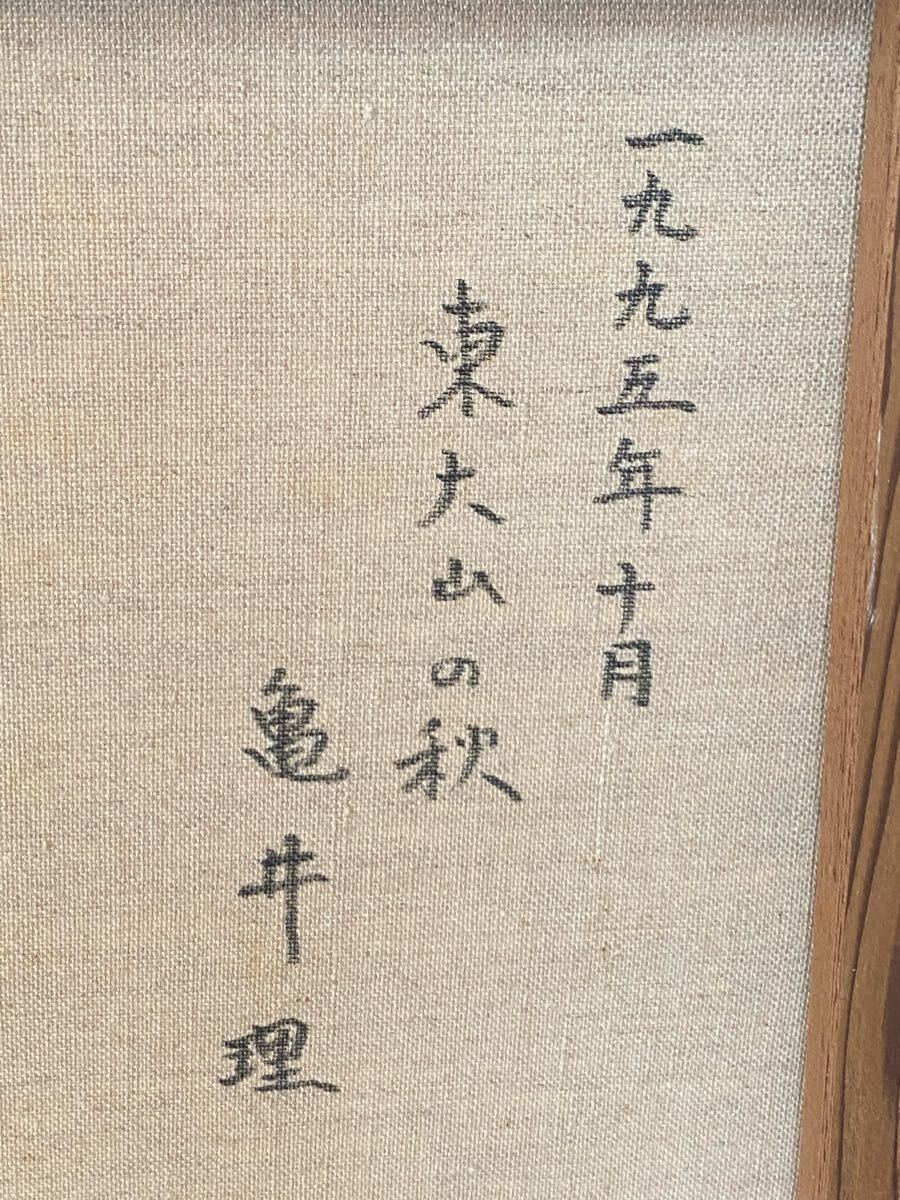 一九九五年十月
東大山の秋
亀井理